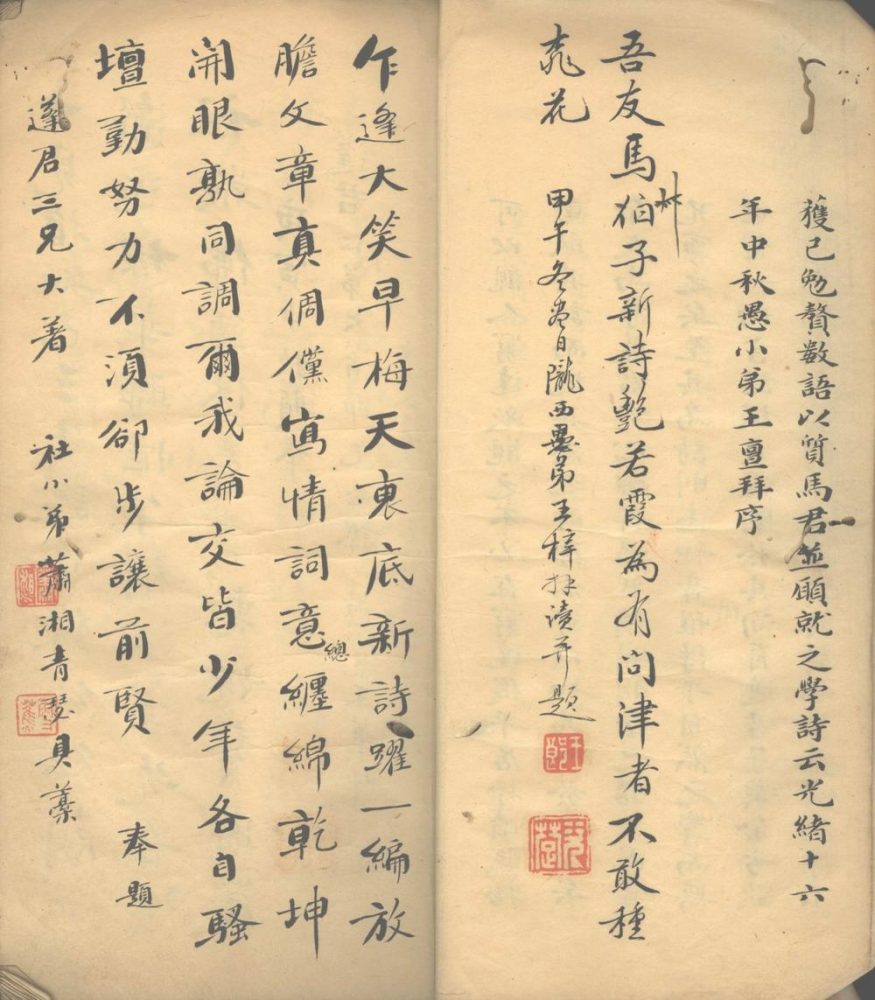 獲已勉贅數語以質馬君並願就之學詩云光緒十六
年中秋愚小弟王亶拜序
吾友馬狛子新詩艷若霞為有問津者不敢種
桃花
甲午冬 日隴西愚弟王梓材讀并題
乍逢大笑早梅天裹底新詩躍一編放
膽文章真倜儻寫情詞意總纏綿乾坤
開眼孰同調爾我論交皆少年各自騷
壇勤努力不須卻步讓前賢 奉題
蓬君三兄大著 社小弟蕭湘青瑟具藁